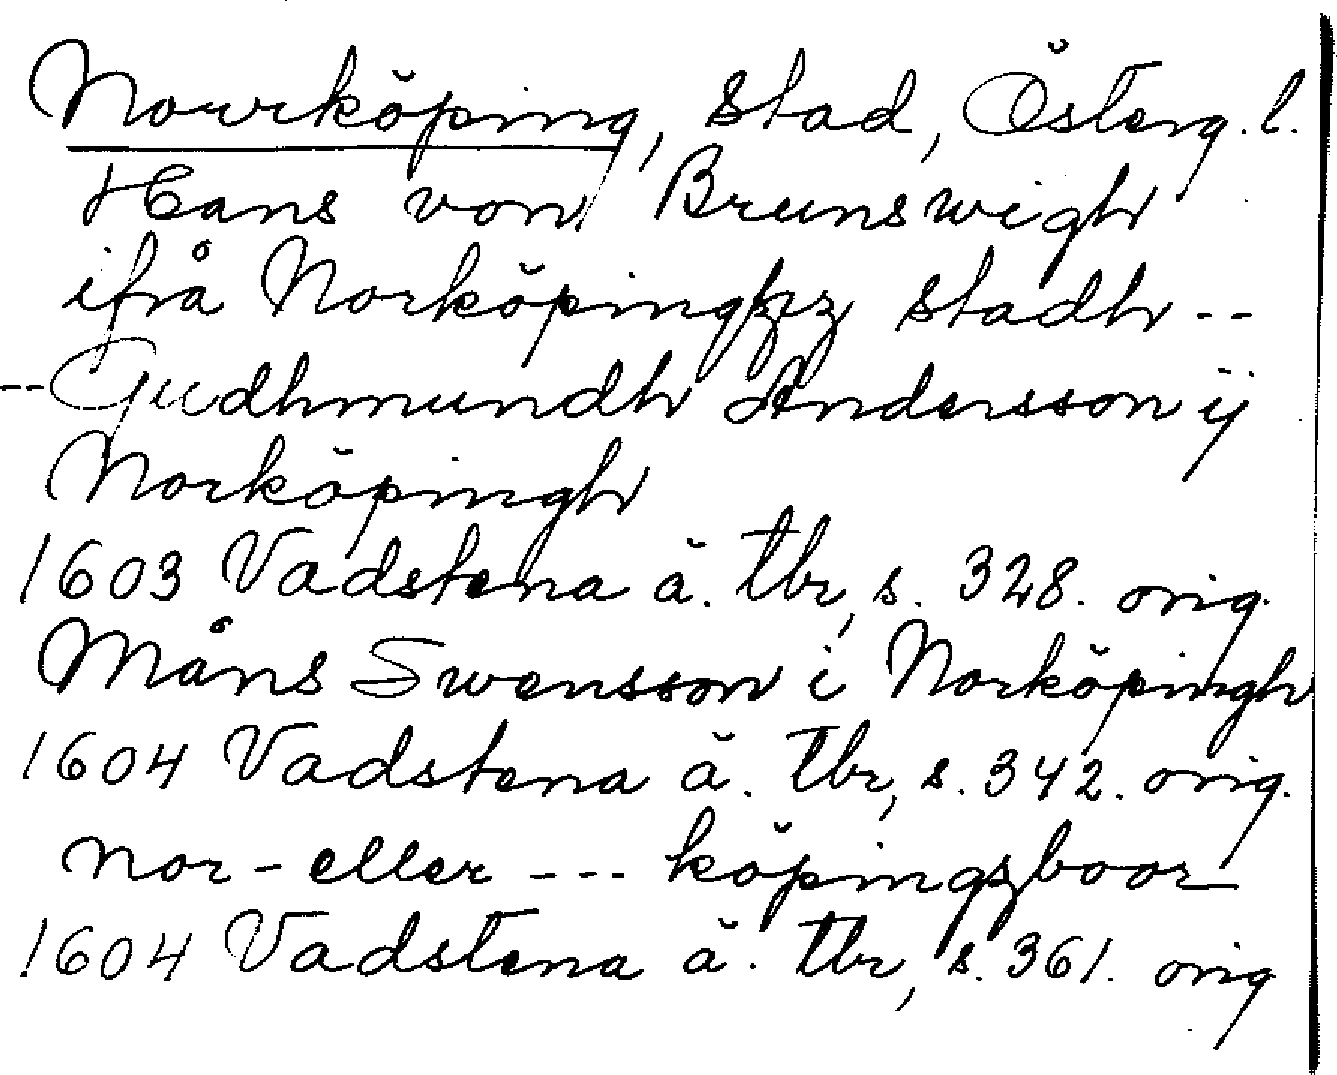 Norrköping, stad, Österg. l.
Hans von Brunswigh
ifrå Norköpingzz stadh --
-- Gudhmundh Andersson ÿ
Norköpingh
1603 Vadstena ä. tbr, s. 328. orig.
Måns Swensson i Norköpingh
1604 Vadstena ä. tbr, s. 342. orig.
nor- eller --- köpingzboor
1604 Vadstena ä. tbr, s. 361. orig